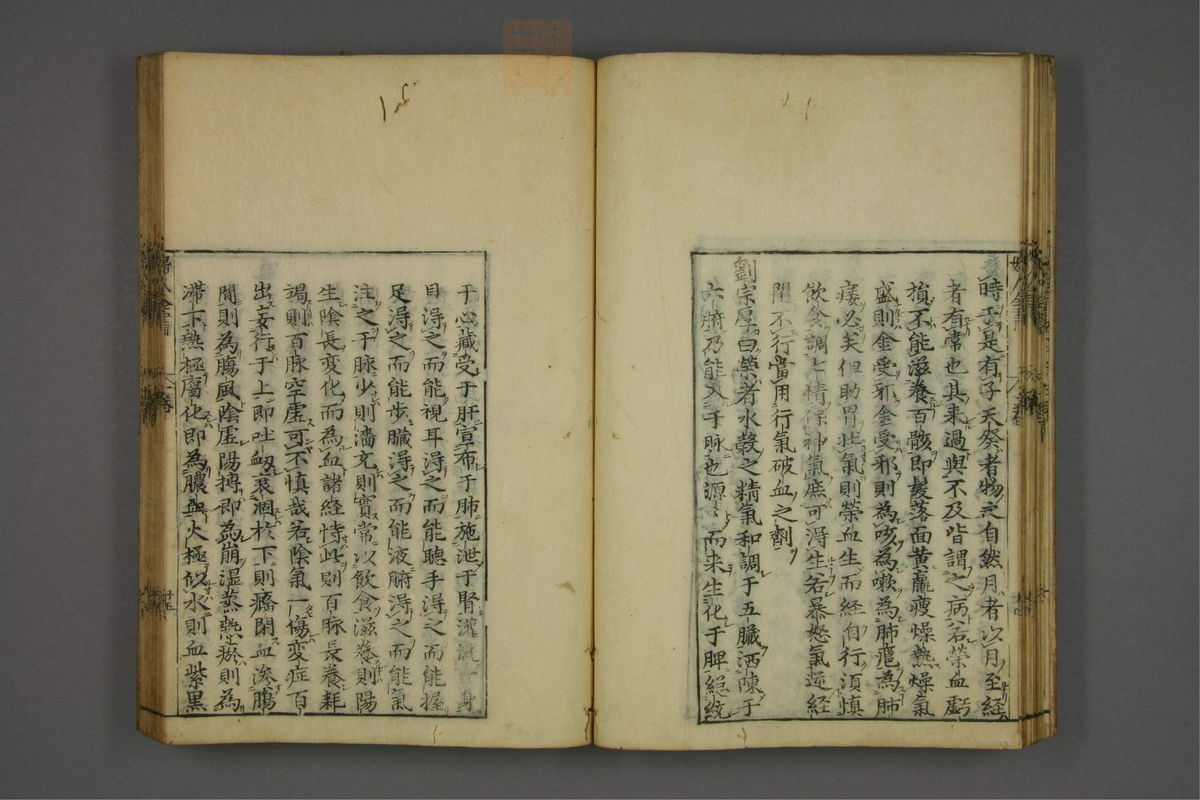 時于是有子天癸者物之自然月者以月至経
者有常也其来過與不及皆謂之病若榮血虧
損不能滋養百骸即髮落面黄羸瘦燥熱燥氣
盛則金受邪金受邪則為咳為嗽為肺癰為肺
痿必矣但助胃壮氣則榮血生而経自行湏慎
飲食調七情保神氣庶可淂生若暴怒氣逆経
閉不行當用行氣破血之劑
劉宗厚曰榮者水榖之精氣和調于五臓洒陳于
六腑乃能入于脉也源〻而来生化于脾緫統
于心藏受于肝宣布于肺施泄于腎灌漑一身
目淂之而能視耳淂之而能聴手淂之而能握
足淂之而能歩臓淂之而能液腑淂之而能氣
注之于脉少則濇充則實常以飲食滋養則陽
生陰長変化而為血諸経恃此則百脉長養耗
竭則百脉空虚可不慎哉若陰氣一傷変症百
出妄行于上即吐衂衰涸於下則癆閉血滲腸
間則為腸風陰虚陽搏即為崩湿蒸熱瘀則為
滞下熱極腐化即為膿血火極似水則血紫黒